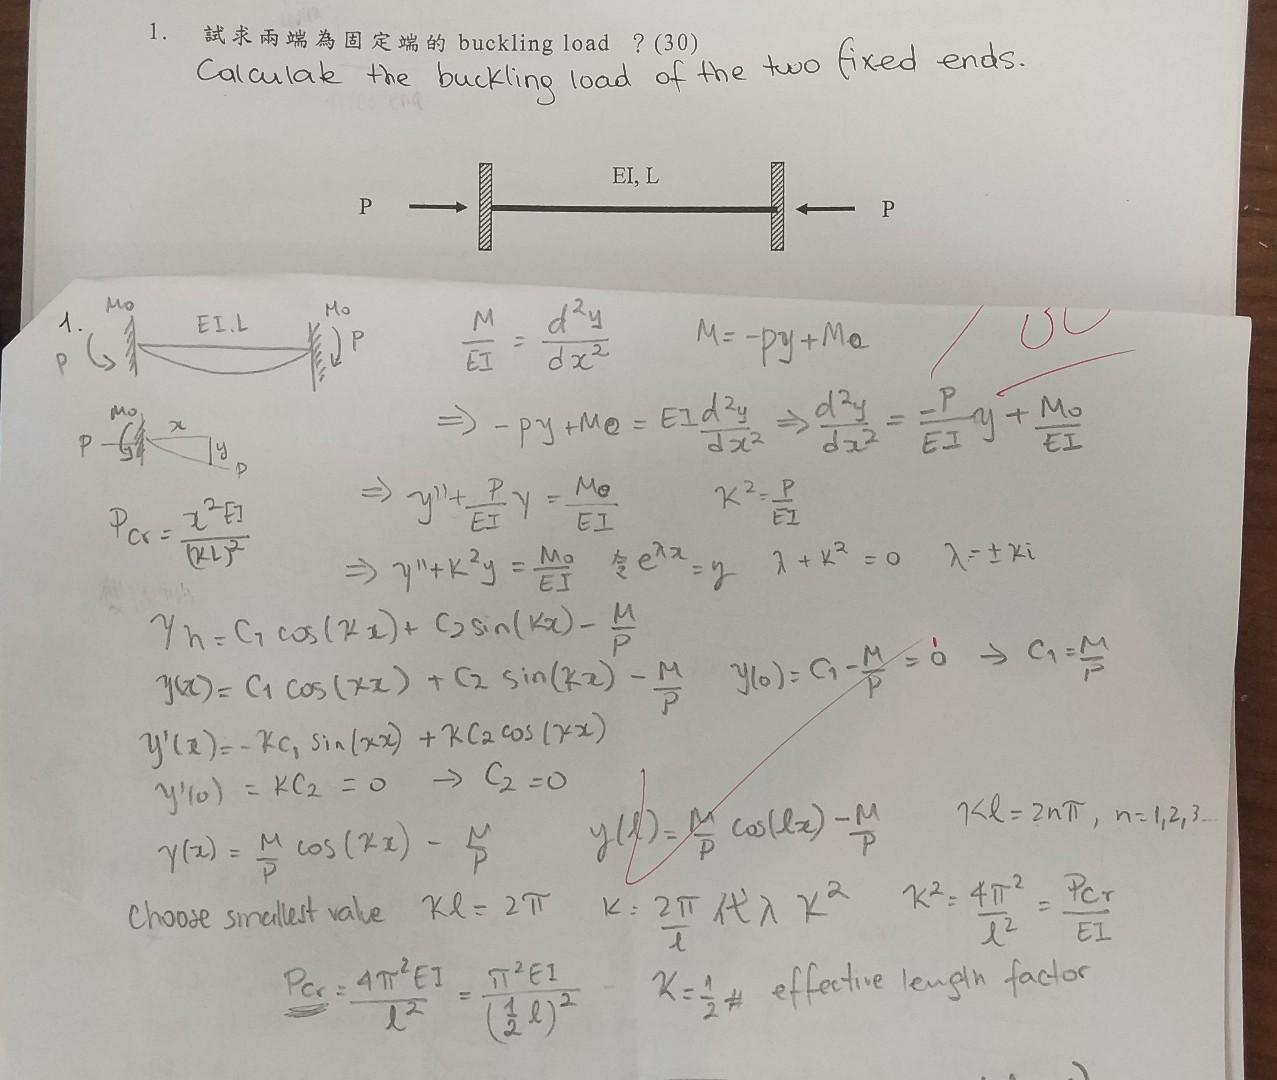 1. 試求兩端為固定端的 buckling load ? (30)
Calculate the buckling load of the two fixed ends.
EI, L
P
P
1.
Mo
EI.L
Mo
P
P
M/EI = d²y/dx²
M = -py + Mo
⇒ -py + Mo = EI d²y/dx² ⇒ d²y/dx² = -P/EI y + Mo/EI
Mo
P
x
y
P
⇒ y'' + P/EI y = Mo/EI
K² = P/EI
Pcr = π²EI/(KL)²
⇒ y'' + K²y = Mo/EI 令 e^λx = y λ + K² = 0 λ = ±Ki
yh = C1 cos(Kx) + C2 sin(Kx) - M/P
y(x) = C1 cos(Kx) + C2 sin(Kx) - M/P y(0) = C1 - M/P = 0 → C1 = M/P
y'(x) = -KC1 sin(Kx) + KC2 cos(Kx)
y'(0) = KC2 = 0 → C2 = 0
y(x) = M/P cos(Kx) - M/P y(l) = M/P cos(lx) - M/P Kl = 2nπ, n = 1,2,3...
Choose smallest value Kl = 2π K = 2π/l 代入 K² K² = 4π²/l² = Pcr/EI
Pcr = 4π²EI/l² = π²EI/(1/2 l)² K = 1/2 # effective length factor